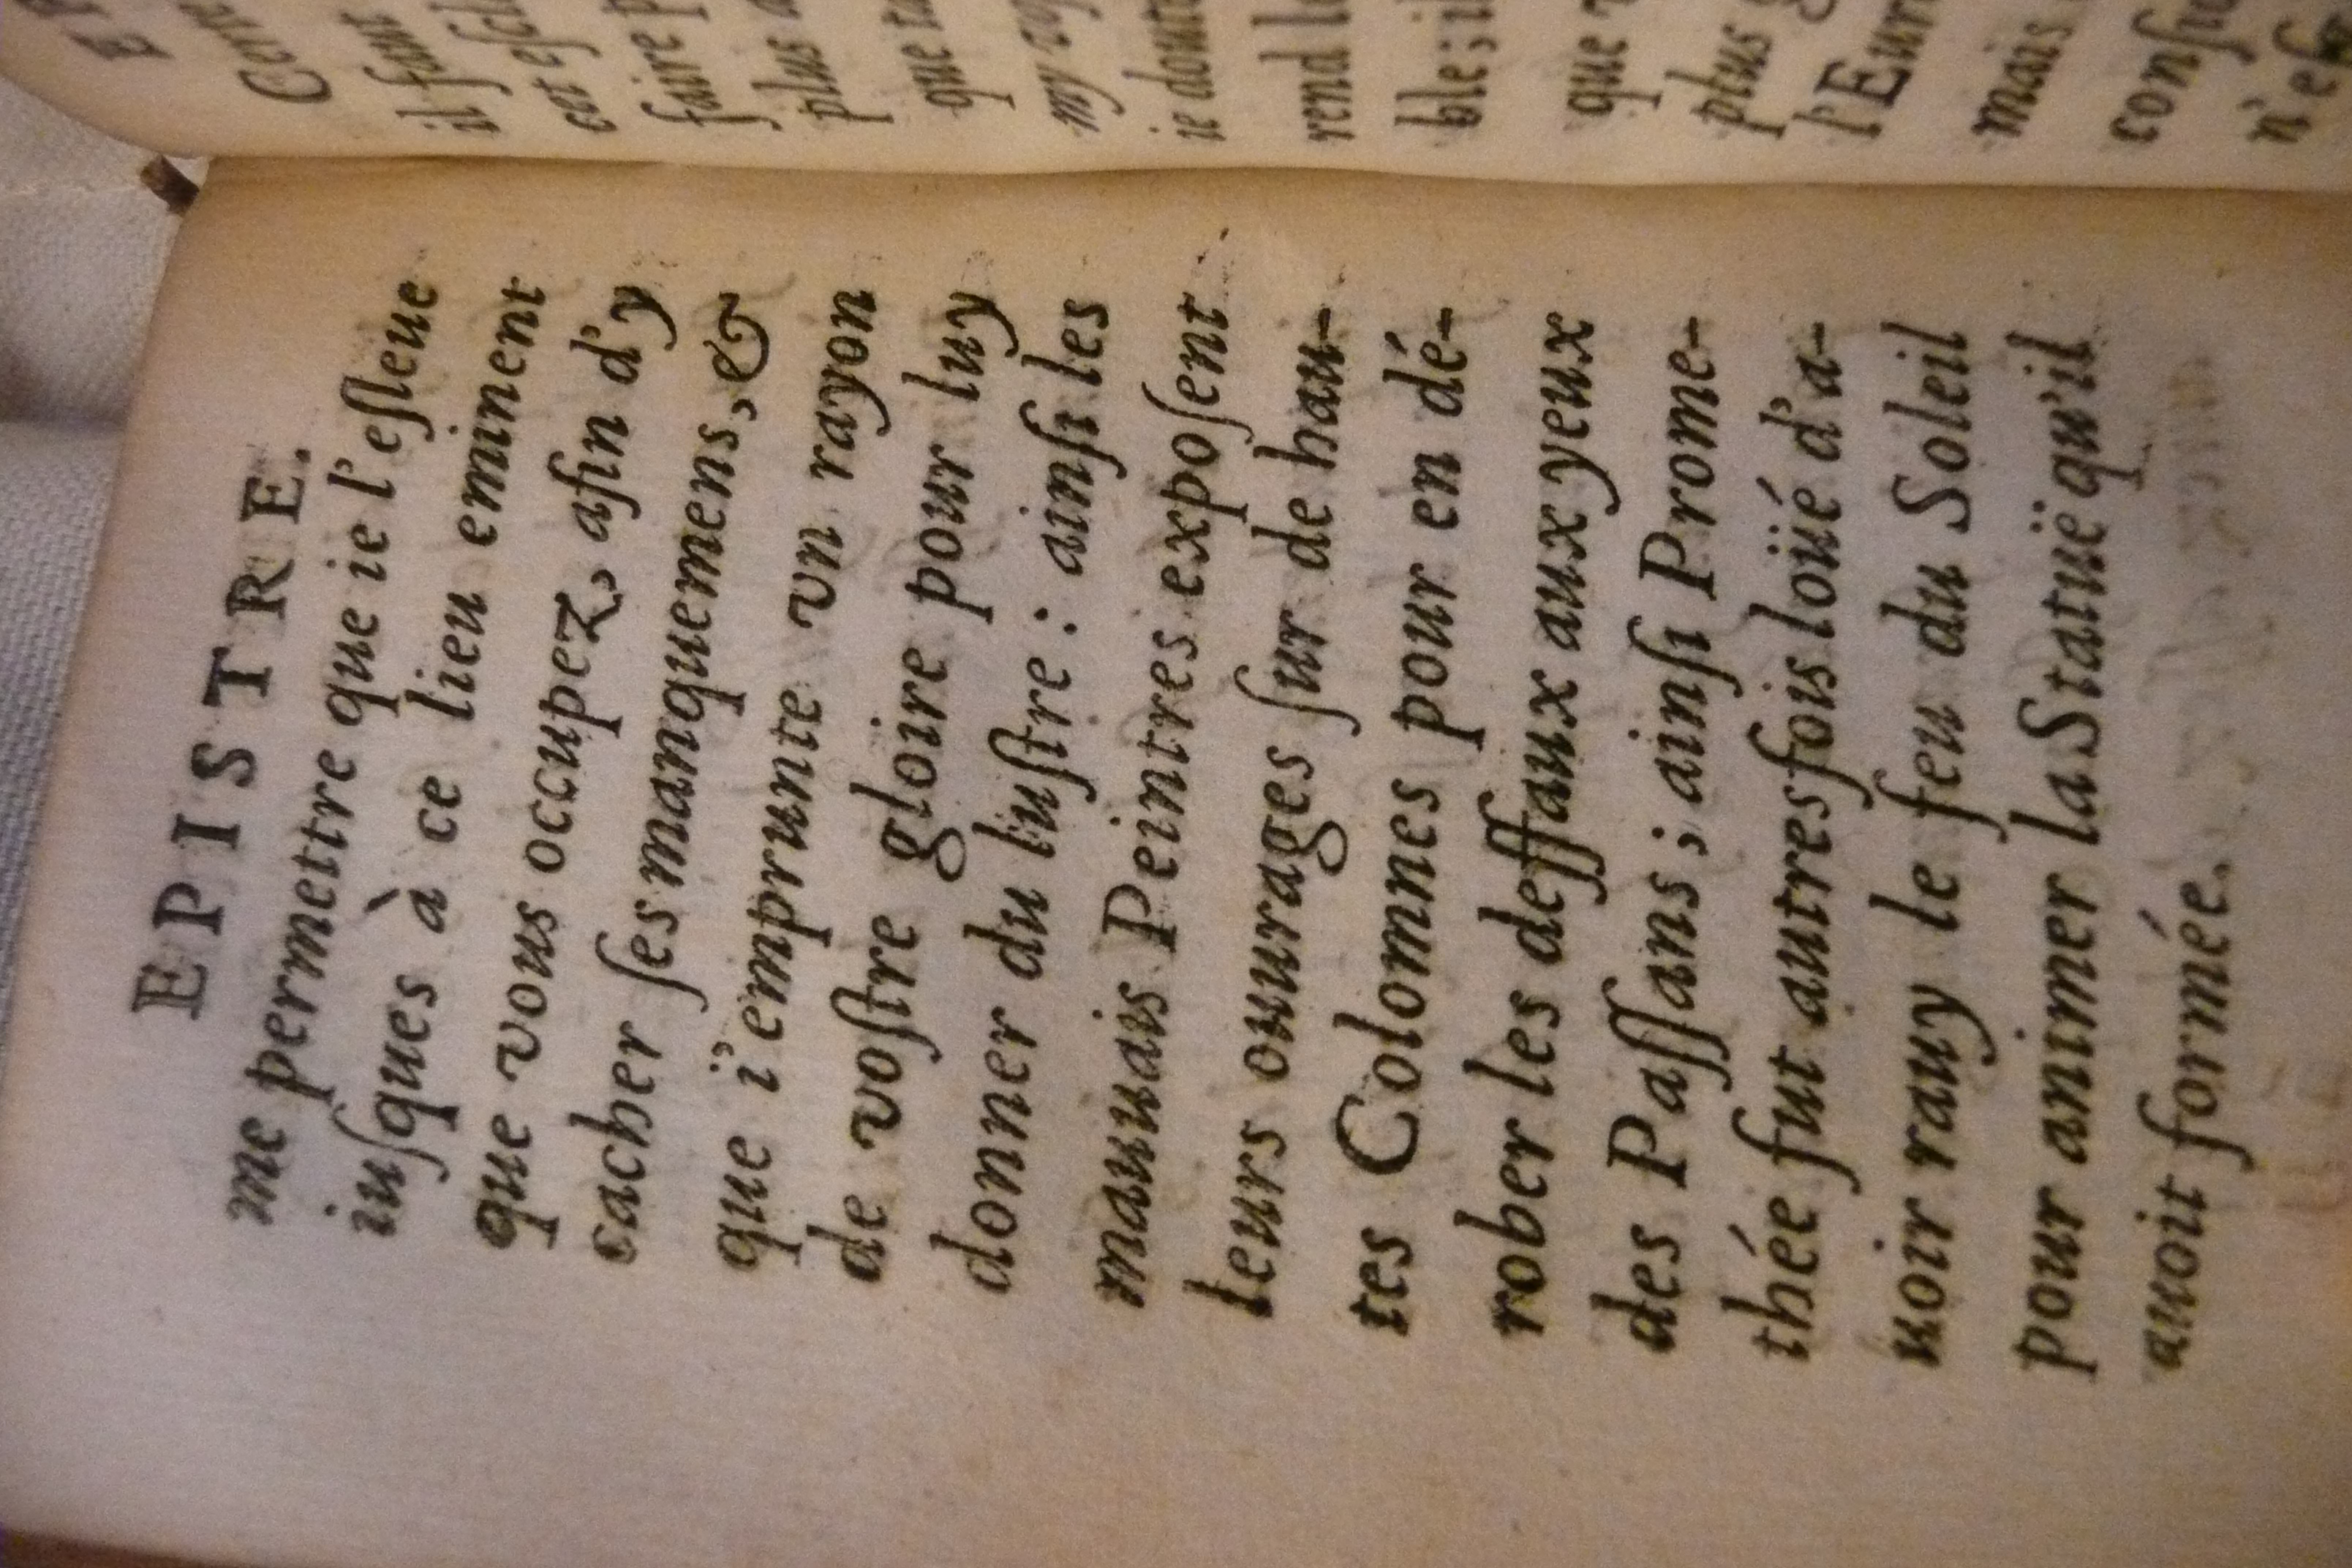 EPISTRE.
me permettre que ie l'eſleue
iuſques à ce lieu eminent
que vous occupez, afin d'y
cacher ſes manquemens, &
que i'emprunte vn rayon
de voſtre gloire pour luy
donner du luſtre : ainſi les
mauuais Peintres expoſent
leurs ouurages ſur de hau-
tes Colomnes pour en dé-
rober les deffaux aux yeux
des Paſſans ; ainſi Prome-
thée fut autresfois loüé d'a-
uoir rauy le feu du Soleil
pour animer la Statuë qu'il
auoit formée.
il faut
faire
plus
que
ie
rend
ble ; il
que
plus
l'Eur
mais